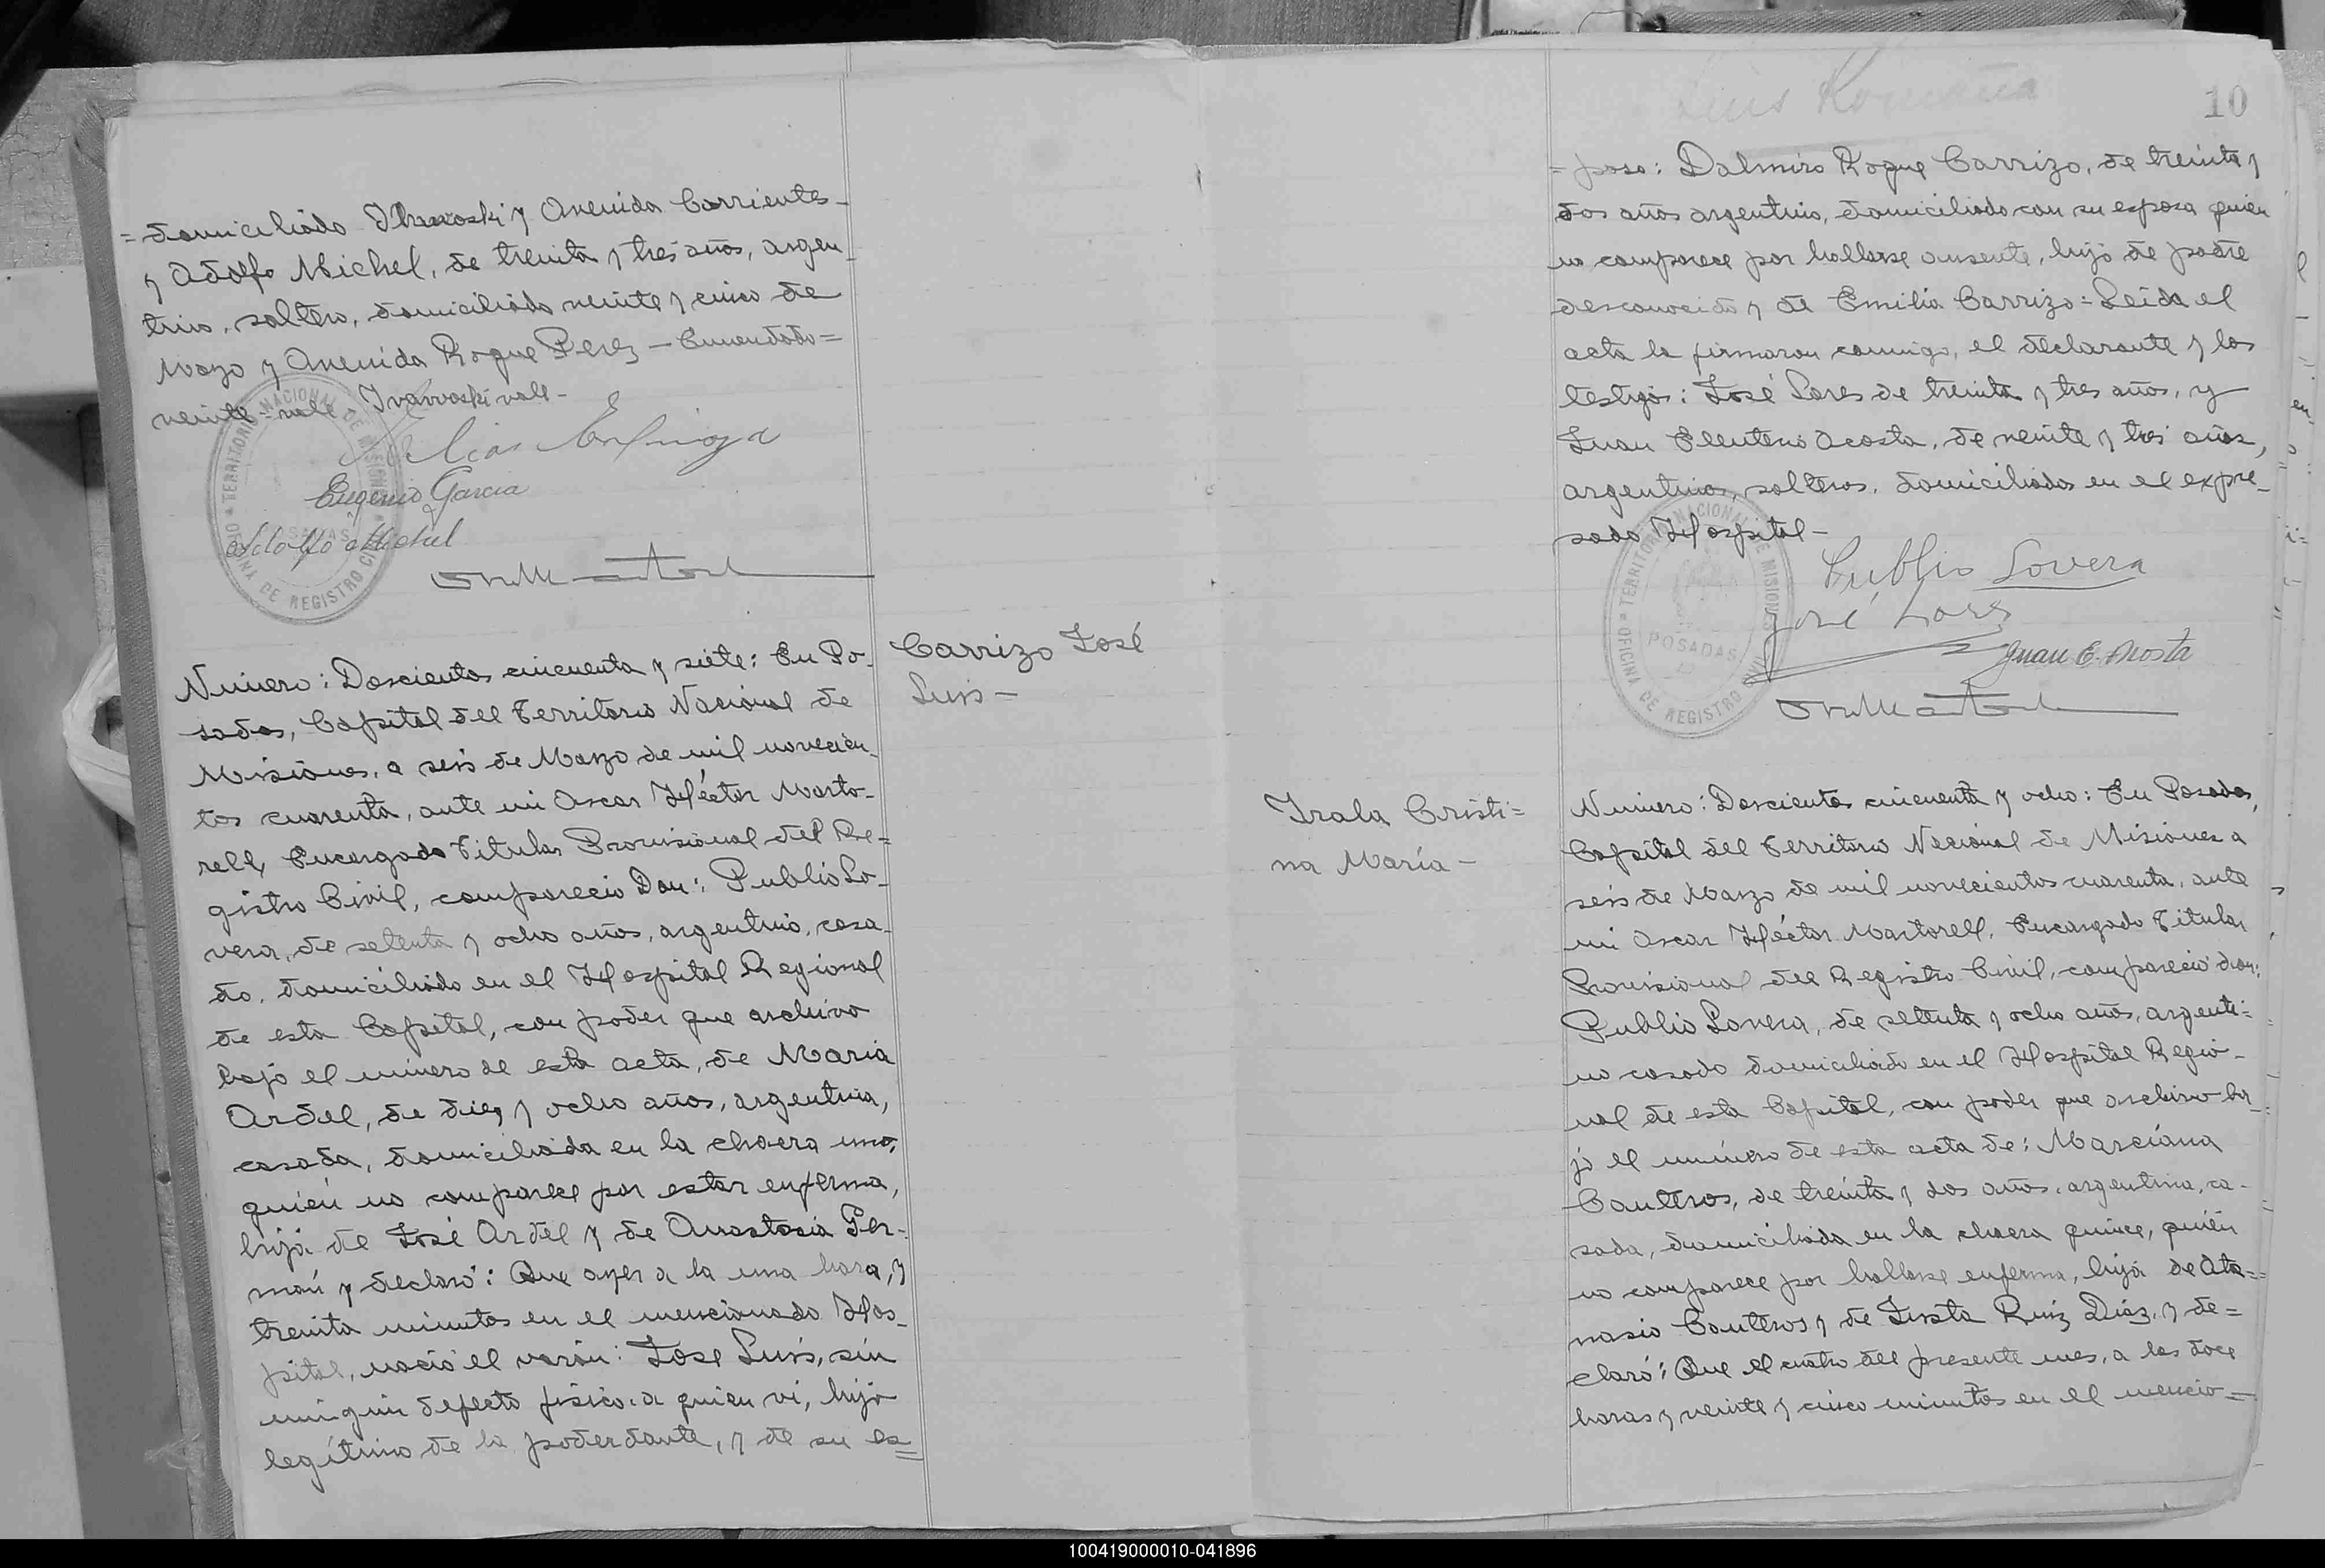 = domiciliado Ivavoski y Avenida Corrientes -
y Adolfo Michel, de treinta y tres años, argen-
tino, soltero, domiciliado veinte y cinco de
Mayo y Avenida Roque Perez - Enmendado =
veinte = vale Ivavoski vale -
Elias Espinoza
Eugenio Garcia
Adolfo Michel
TERRITORIO NACIONAL DE MISIONES
OFICINA DE REGISTRO CIVIL
POSADAS
Carrizo José
Luis -
Número: Doscientos cincuenta y siete: En Po-
sadas, Capital del Territorio Nacional de
Misiones, a seis de Marzo de mil novecien-
tos cuarenta, ante mi Oscar Héctor Marto-
rell, Encargado Titular Provisional del Re=
gistro Civil, compareció Don: Publio Lo-
vera, de setenta y ocho años, argentino, casa-
do, domiciliado en el Hospital Regional
de esta Capital, con poder que archivo
bajo el número de esta acta, de María
Ardel, de diez y ocho años, argentina,
casada, domiciliada en la chacra uno,
quién no comparece por estar enferma,
hija de José Ardel y de Anastasia Ger-
mán y declaró: Que ayer a la una hora, y
treinta minutos en el mencionado Hos-
pital, nació el varón: José Luis, sin
ningún defecto físico. a quien vi, hijo
legítimo de la poderdante, y de su es=
Luis Romaña
10
= poso: Dalmiro Roque Carrizo, de treinta y
dos años argentino, domiciliado con su esposa quién
no comparece por hallarse ausente, hijo de padre
desconocido y de Emilia Carrizo = Leída el
acta la firmaron conmigo, el declarante y los
testigos: José Lares de treinta y tres años, y
Juan Eleuterio Acosta, de veinte y tres años,
argentinos, solteros, domiciliados en el expre-
sado Hospital -
Publio Lovera
José Lares
Juan E. Acosta
TERRITORIO NACIONAL DE MISIONES
OFICINA DE REGISTRO CIVIL
POSADAS
Irala Cristi=
na María -
Número: Doscientos cincuenta y ocho: En Posadas,
Capital del Territorio Nacional de Misiones a
seis de Marzo de mil novecientos cuarenta, ante
mi Oscar Héctor Martorell, Encargado Titular
Provisional del Registro Civil, compareció don:
Publio Lovera, de setenta y ocho años, argenti=
no casado domiciliado en el Hospital Regio-
nal de esta Capital, con poder que archivo ba-
jo el número de esta acta de: Marciana
Canteros, de treinta y dos años, argentina, ca-
sada, domiciliada en la chacra quince, quién
no comparece por hallarse enferma, hija de Ata=
nasio Canteros y de Justa Ruiz Diaz, y de=
claró: Que el cuatro del presente mes, a las doce
horas y veinte y cinco minutos en el mencio=
100419000010-041896